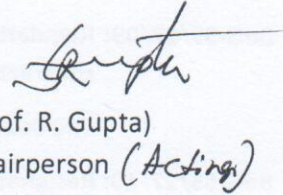 of. R. Gupta)
airperson (Acting)